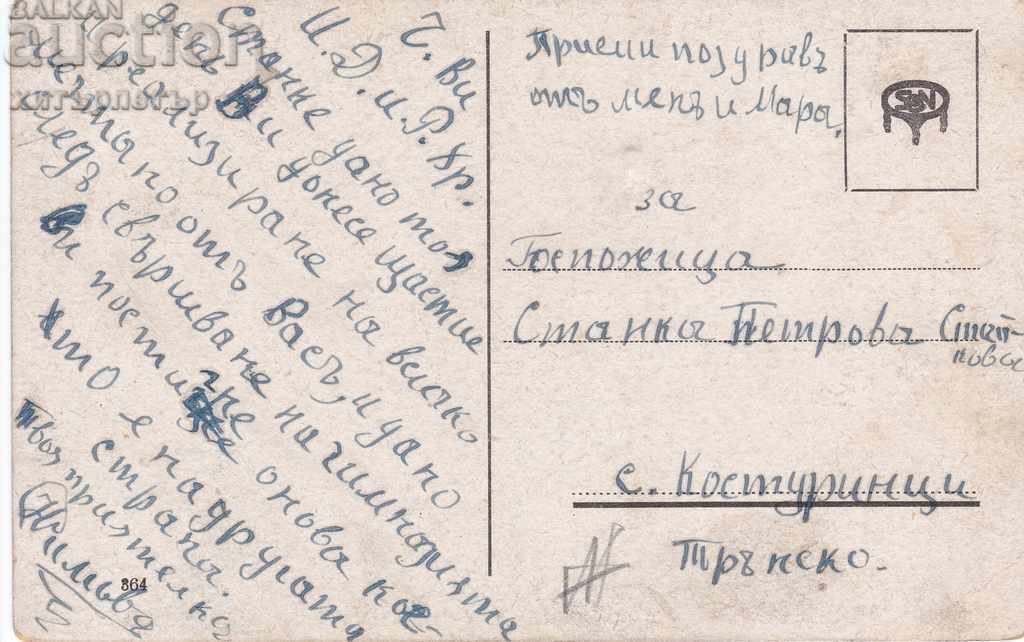 BALKAN
auction
хитърпетър
Ч. Ви
И. Д. и Р. Хр.
Станке дано тоя
день Ви донесе щастие
и реализиране на всичко
мечтано отъ Васъ, и дано
следъ свършване на гимназията
Ви постигне онова кое-
що е на другата
страна.
Твоя приятелка
364
Приеми поздравъ
отъ менъ и Мара.
S&N
за
Госпожица
Станка Петрова Стай-
кова
с. Костуринци
Трънско.